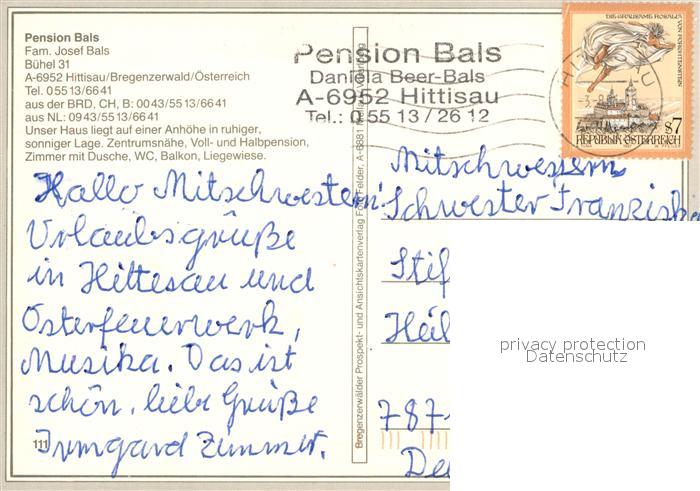 Pension Bals
Fam. Josef Bals
Bühel 31
A-6952 Hittisau/Bregenzerwald/Österreich
Tel. 05513/6641
aus der BRD, CH, B: 0043/5513/6641
aus NL: 0943/5513/6641
Unser Haus liegt auf einer Anhöhe in ruhiger,
sonniger Lage. Zentrumsnähe, Voll- und Halbpension,
Zimmer mit Dusche, WC, Balkon, Liegewiese.
Hallo Mitschwestern!
Urlaubsgrüße
in Hittesau und
Osterfeuerwerk,
Musika. Das ist
schön, liebe Grüße
Irmgard Zimmer.
111
Bregenzerwälder Prospekt- und Ansichtskartenverlag Foto Felder, A-6881
Pension Bals
Daniela Beer-Bals
A-6952 Hittisau
Tel.: 0 55 13 / 26 12
DIE GRAUSAME ROSALIA VON FORCHTENSTEIN
S7
REPUBLIK ÖSTERREICH
Mitschwestern
Schwester Franziska
Stif
Heil
787
De
privacy protection
Datenschutz